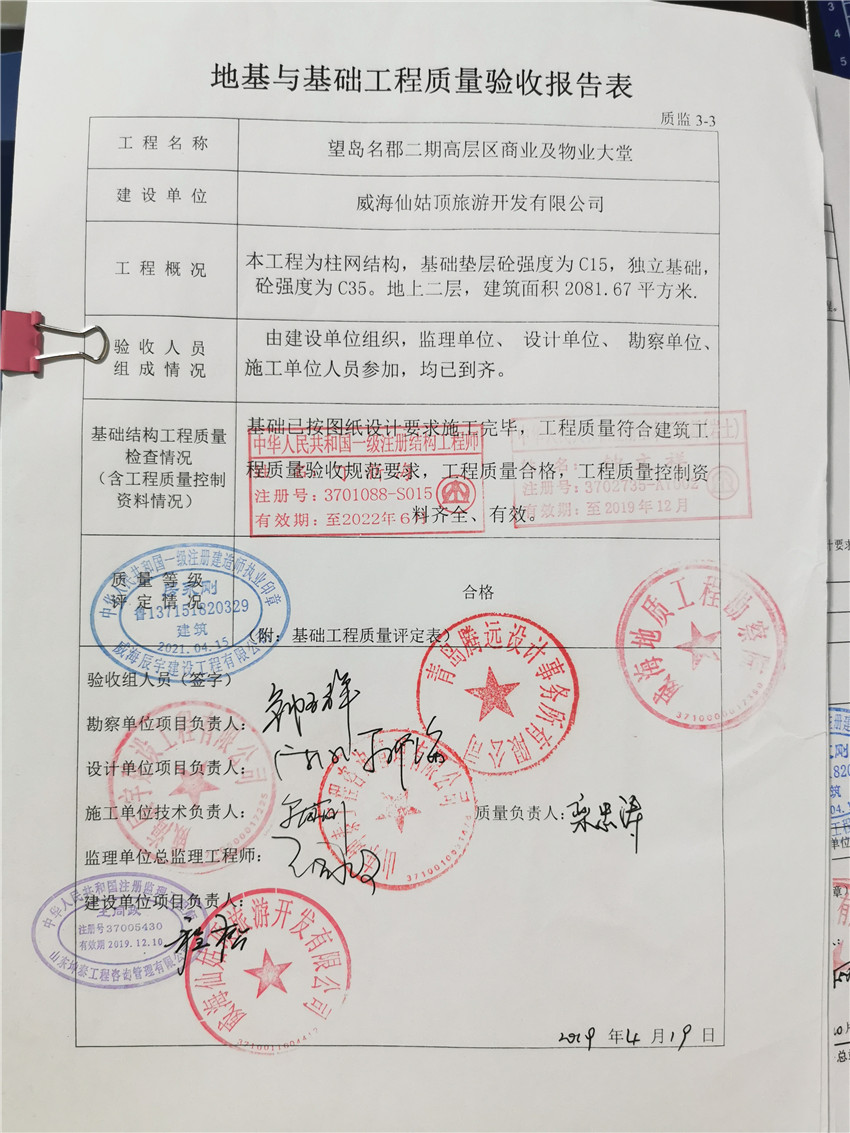 地基与基础工程质量验收报告表
质监 3-3
工程名称
望岛名郡二期高层区商业及物业大堂
建设单位
威海仙姑顶旅游开发有限公司
工程概况
本工程为柱网结构，基础垫层砼强度为 C15，独立基础，
砼强度为 C35。地上二层，建筑面积 2081.67 平方米.
验收人员
组成情况
由建设单位组织，监理单位、 设计单位、 勘察单位、
施工单位人员参加，均已到齐。
基础结构工程质量
检查情况
（含工程质量控制
资料情况）
基础已按图纸设计要求施工完毕，工程质量符合建筑工
程质量验收规范要求，工程质量合格，工程质量控制资
料齐全、有效。
中华人民共和国一级注册结构工程师
注册号：3701088-S015
有效期：至2022年6月
注册号：3702735-AY002
有效期：至2019年12月
质量等级
评定情况
合格
（附：基础工程质量评定表）
中华人民共和国一级注册建造师执业印章
鲁137151820329
建筑
2021.04.15
威海辰宇建设工程有限公司
验收组人员（签字）
勘察单位项目负责人：
设计单位项目负责人：
施工单位技术负责人：
质量负责人：栾忠涛
监理单位总监理工程师：
建设单位项目负责人：
程松
青岛腾远设计事务所有限公司
威海地质工程勘察院
中华人民共和国注册监理工程师
注册号37005430
有效期 2019.12.10
山东坤泰工程咨询管理有限公司
威海仙姑顶旅游开发有限公司
2019 年 4 月 19 日